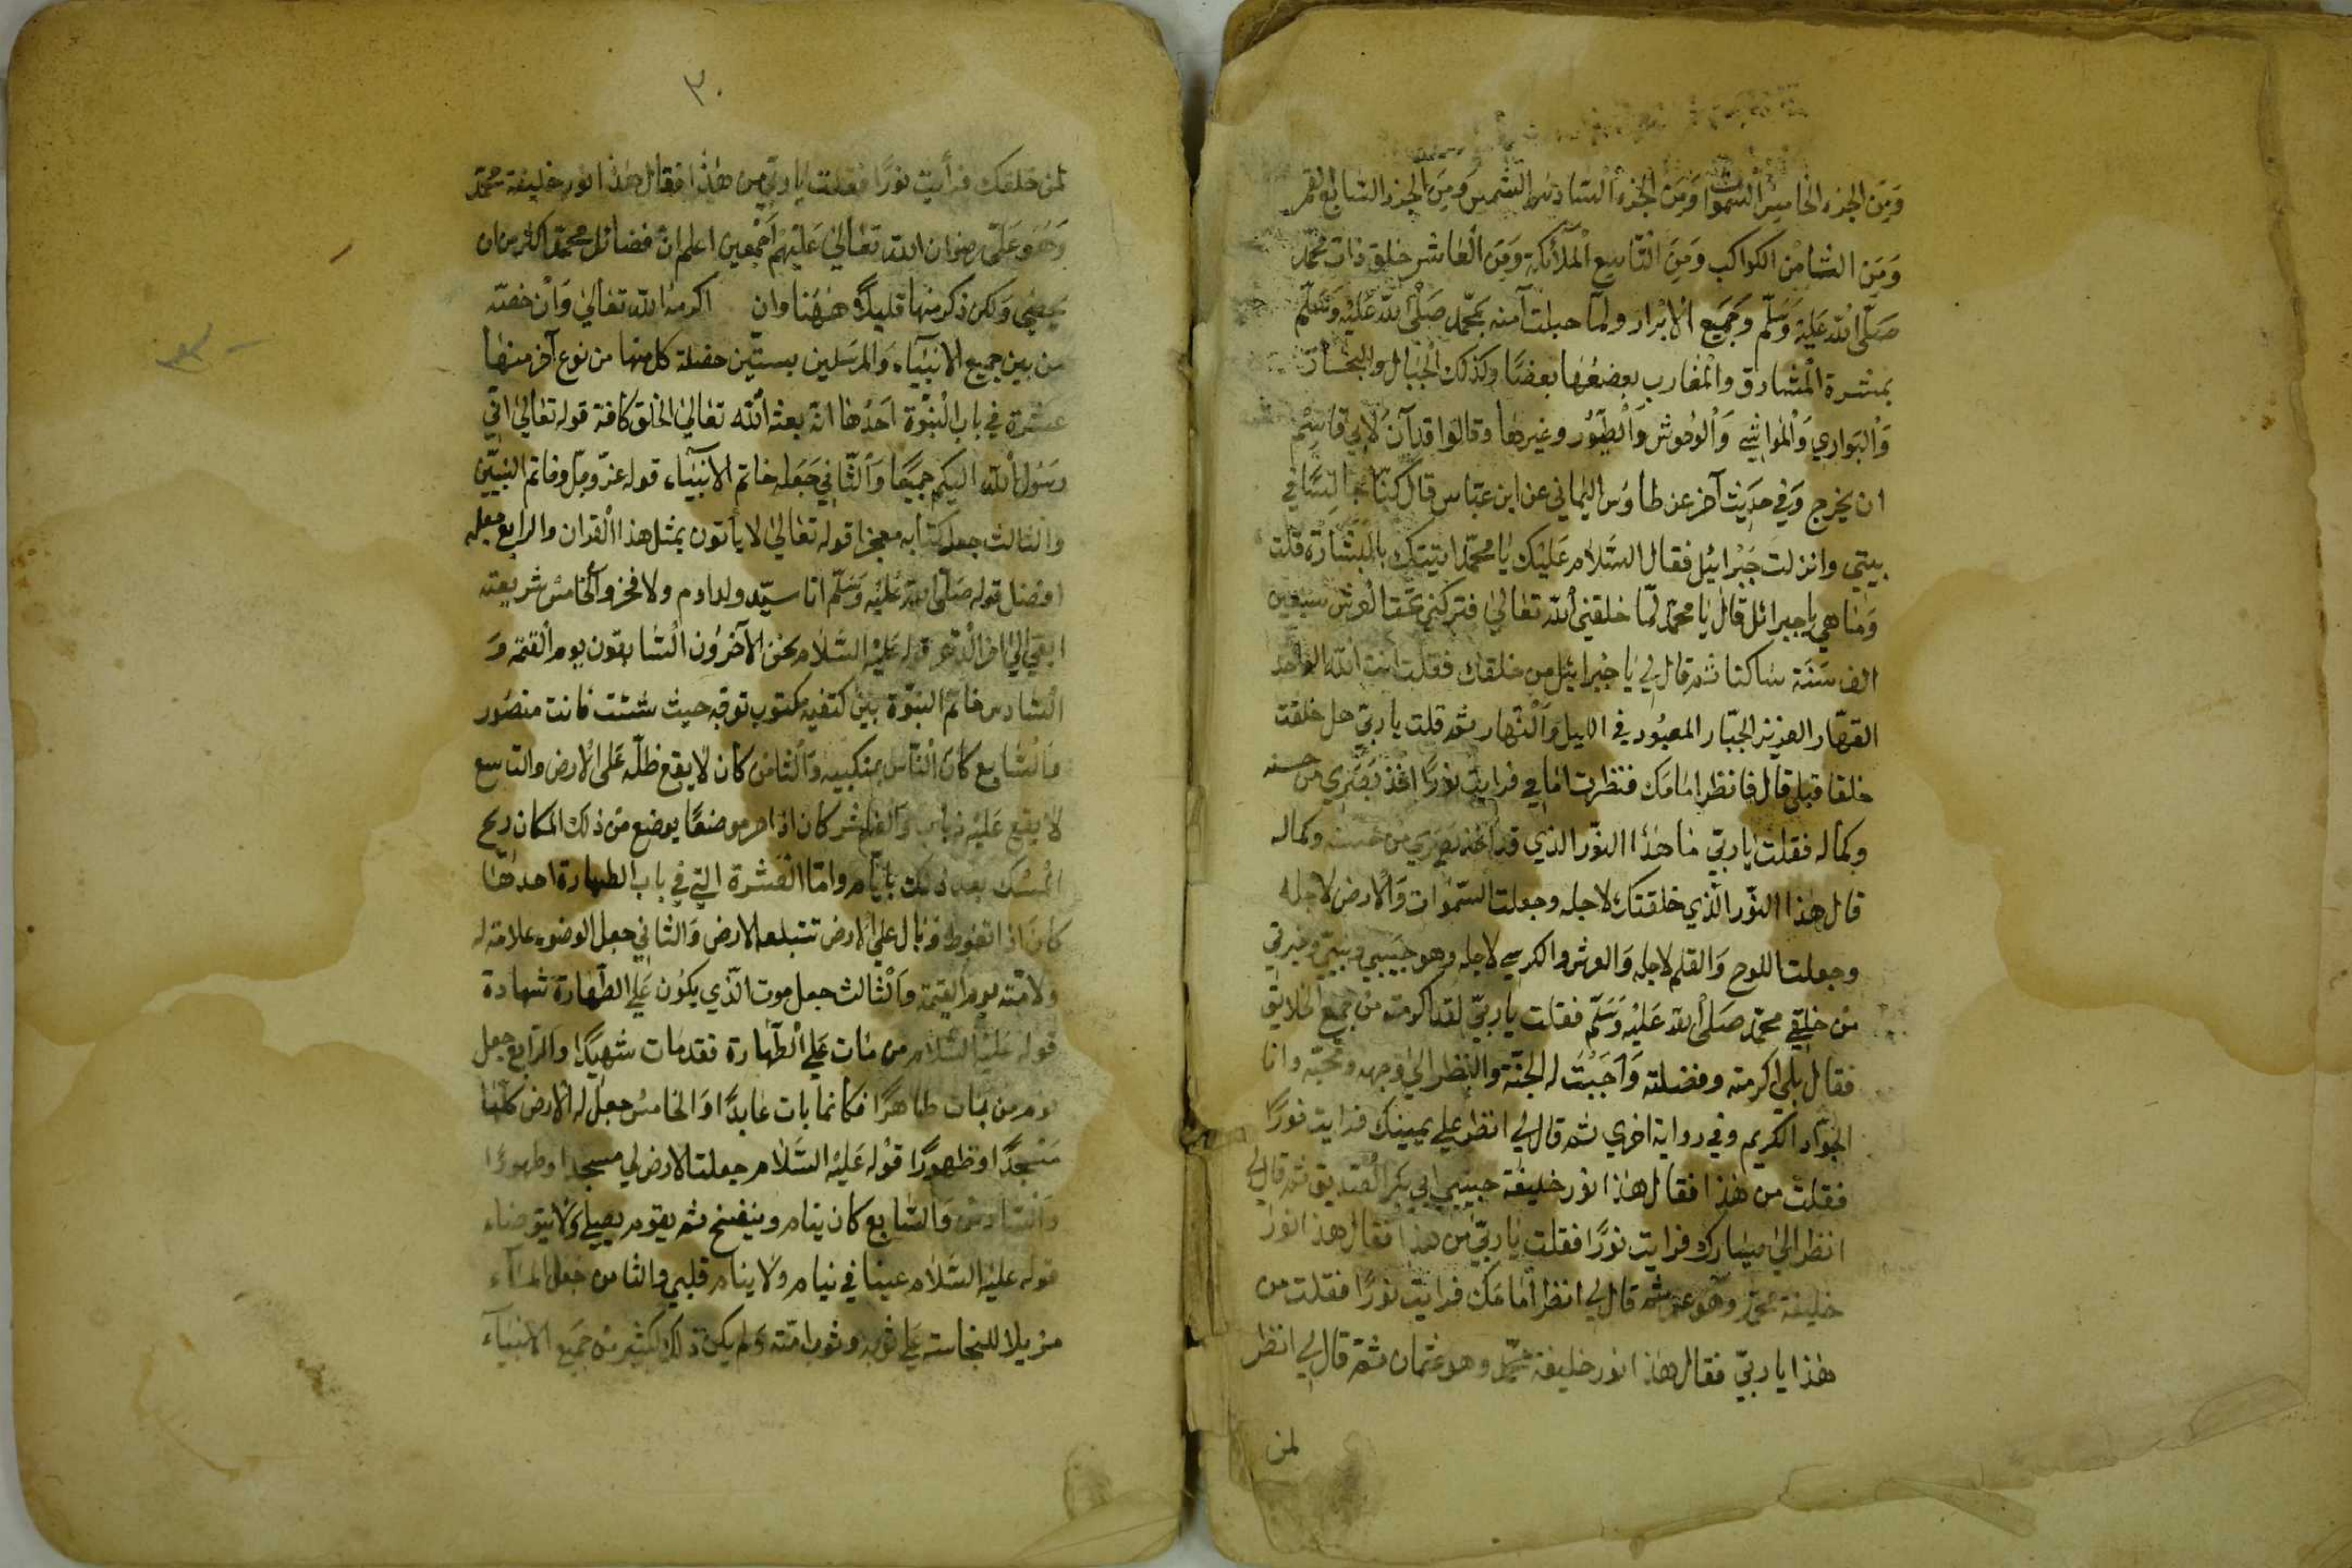 وَمِنَ الجزء الخامس السموات وَمِنَ الجزء السادس الشمس وَمِنَ الجزء السابع القمر
وَمِنَ الثامن الكواكب وَمِنَ التاسع الملائكة وَمِنَ العاشر خلق ذات محمّد
صَلّى الله عَليْه وَسَلّم وَجَميع الابرار ولمّا حبلت آمنه بمحمّد صَلّى الله عَليْه وَسَلّم
بمنشرة المشارق والمغارب بعضهَا بعضًا وكذلك الجبال والبحار
وَالبَوادي وَالمواشي وَالوحوش وَالطّيور وغيرهَا وقالوا قد آن لابي قاسِم
ان يخرج وَفي حَديث آخر عن طاوُس اليماني عن ابن عبّاس قال كنّا جالسًا في
بيتي وانزلت جَبْرائيل فقال السّلام عَليْك يا محمّد اتيتك بالبشارة قلت
وَمَا هي يا جبرائل قال يا محمّد لمّا خلقني الله تعَالى فتركني تحت العرش سبعين
الف سَنَة ساكتا ثم قال لي يا جبرائيل من خلقك فقلت انت الله الواحد
القهّار العزيز الجبّار المعبُود في الليل وَالنّهار ثم قلت يا ربّي هل خلقت
خلقا قبلي قال فانظر امامَك فنظرت امامي فرايت نورًا اخذ بصَري من حسنه
وكماله فقلت يا ربّي مَا هَذا النّور الذي قد اخذ بصَري من حسنه وكماله
قال هَذا النّور الّذي خلقتك لاجله وجعلت السّموات وَالارض لاجله
وجعلت اللوح وَالقلم لاجله وَالعرش والكرسي لاجله وهو حَبيبي ونبيّي وخيرتي
من خلقي محمّد صَلى الله عَليْه وَسَلّم فقلت يا ربّي لقد اكرمته من جميع الخلايق
فقال بلى اكرمته وفضلته وَاجَبْتُ له الجنّة والنظر الى وجهه ومحبّه وانا
الجوّاد الكريم وفي رواية اخري ثم قال لي انظر على يمينك فرايت نورًا
فقلت من هَذا فقال هذا نور خليفة حبيبي ابي بكر الصّديق ثم قال لي
انظر الى يسَارك فرايت نورًا فقلت يا ربّي من هذا فقال هذا نور
خليفة محمّد وهو عمر ثم قال لي انظر امامَك فرايت نورًا فقلت من
هَذا يا ربّي فقال هَذا نور خليفة محمّد وهو عثمان ثمّ قال لي انظر
لمن
٣٠
لمن خلفك فرأيت نورًا فقلت يا ربّي من هَذا فقال هَذا نور خليفة محمّد
وَهُوَ عَلى رضوان الله تعَالى عَليْهم أجْمعين اعلم انّ فضائل محمّد اكثر من ان
يحصى وَلكن ذكر منهَا قليلاً هَهُنَا وان اكرمه الله تعَالي وَانْ خصّه
من بين جميع الانبيَاء وَالمرسَلين بستّين خصلة كل منها من نوع آخر منهَا
عَشرة في باب النبُوّة احَدُهَا انه بعثه الله تعَالي الخلق كافة قوله تعَالى انّي
رَسُول الله اليكم جميعًا وَالثّاني جَعَله خاتم الانبيَاء قوله عزّ وجلّ وخاتم النبيّين
والثالث جعل كتابه معجزا قوله تعَالي لا ياتون بمثل هذا القران والرابع جعله
افضل قوله صَلّى الله عَليْه وَسَلّم انا سيّد ولد ادم ولا فخر والخامس شريعته
ابقى الى اخر الدّهر قوله عَليْه السّلام نحن الآخرُون السّابقون يوم القيمة وَ
السّادس خاتم النبوّة بين كتفيه مكتوب توجّه حيث شئت فانت منصُور
وَالسّابع كان النّاس بمنكبيه وَالثامن كان لا يقع ظلّه عَلى الارض والتاسع
لا يقع عَليْه ذباب وَالعَاشر كان اذا مر موضعًا يوضع من ذلك المكان ريح
المسْك بعد ذلك بايّام وامّا العَشرة التي في باب الطهارة احدهَا
كان اذا تغوط وبال على الارض تبتلعه الارض وَالثاني جعل الوضوء علامة له
ولامّته يوم القيمة وَالثالث جعل موت الّذي يكون عَلى الطّهارة شهادة
قوله عَليْه السّلام من مَات عَلى الطّهارة فقد مات شهيدًا والرّابع جعل
نوم من بات طاهرًا فكانما بات عابدًا وَالخامس جعل له الارض كلّهَا
مَسْجدًا وطهورًا قوْله عَليْه السّلام جعلت الارض لي مسجدا وطهورًا
وَالسّادس وَالسّابع كان ينام وينفخ ثم يقوم يصلّي وَلا يتوضاء
قوله عليْه السّلام عيناي في نيام وَلا ينام قلبي والثامن جعل المَاء
مزيلا للنجاسة عَلى ثوبه وثوب امّته وَلم يكن ذلك لكثير من جَميع الانبيآء